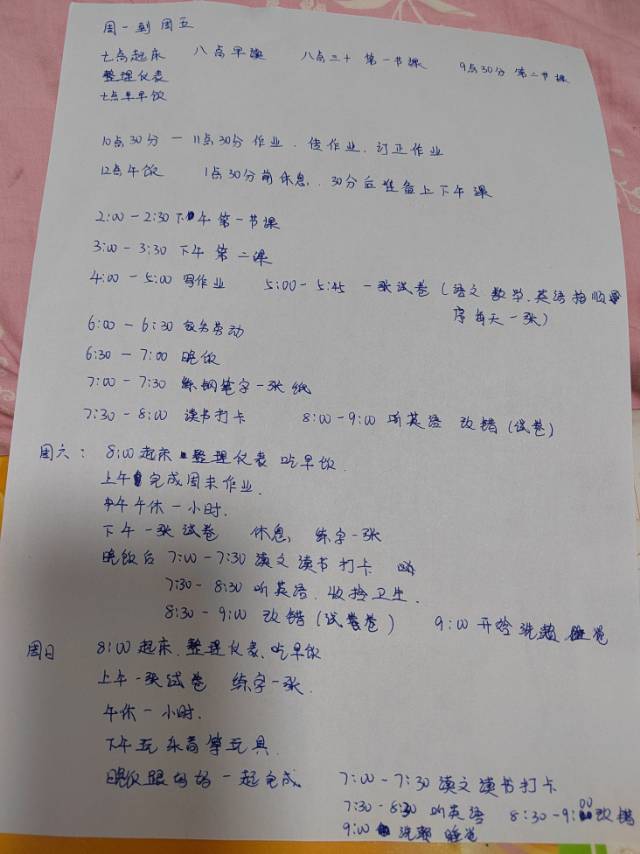 周一到周五
七点起床 八点早课 八点三十 第一节课 9点30分 第二节课
整理仪表
七点半早饮
10点30分 一 11点30分 作业、传作业、订正作业
12点午饮 1点30分前休息、30分后准备上下午课
2:00 - 2:30 下午第一节课
3:00 - 3:30 下午 第二课
4:00 - 5:00 写作业 5:00 - 5:45 一张试卷(语文 数学、英语按顺
序每天一张)
6:00 - 6:30 劳动
6:30 - 7:00 晚饮
7:00 - 7:30 练钢笔字一张纸
7:30 - 8:00 读书打卡 8:00 - 9:00 听英语 改错(试卷)
周六: 8:00起床 整理仪表 吃早饮.
上午 完成周末作业.
午休一小时.
下午一张试卷 休息, 练字一张
晚饭后 7:00 - 7:30 语文读书打卡
7:30 - 8:30 听英语、收拾卫生.
8:30 - 9:00 改错(试卷) 9:00 开始洗漱 睡觉
周日 8:00起床、整理仪表、吃早饮
上午一张试卷 练字一张.
午休一小时.
下午玩乐高等玩具.
晚饭跟妈妈一起完成. 7:00 - 7:30 语文读书打卡
7:30 - 8:30 听英语 8:30 - 9:00 改错
9:00 洗漱 睡觉